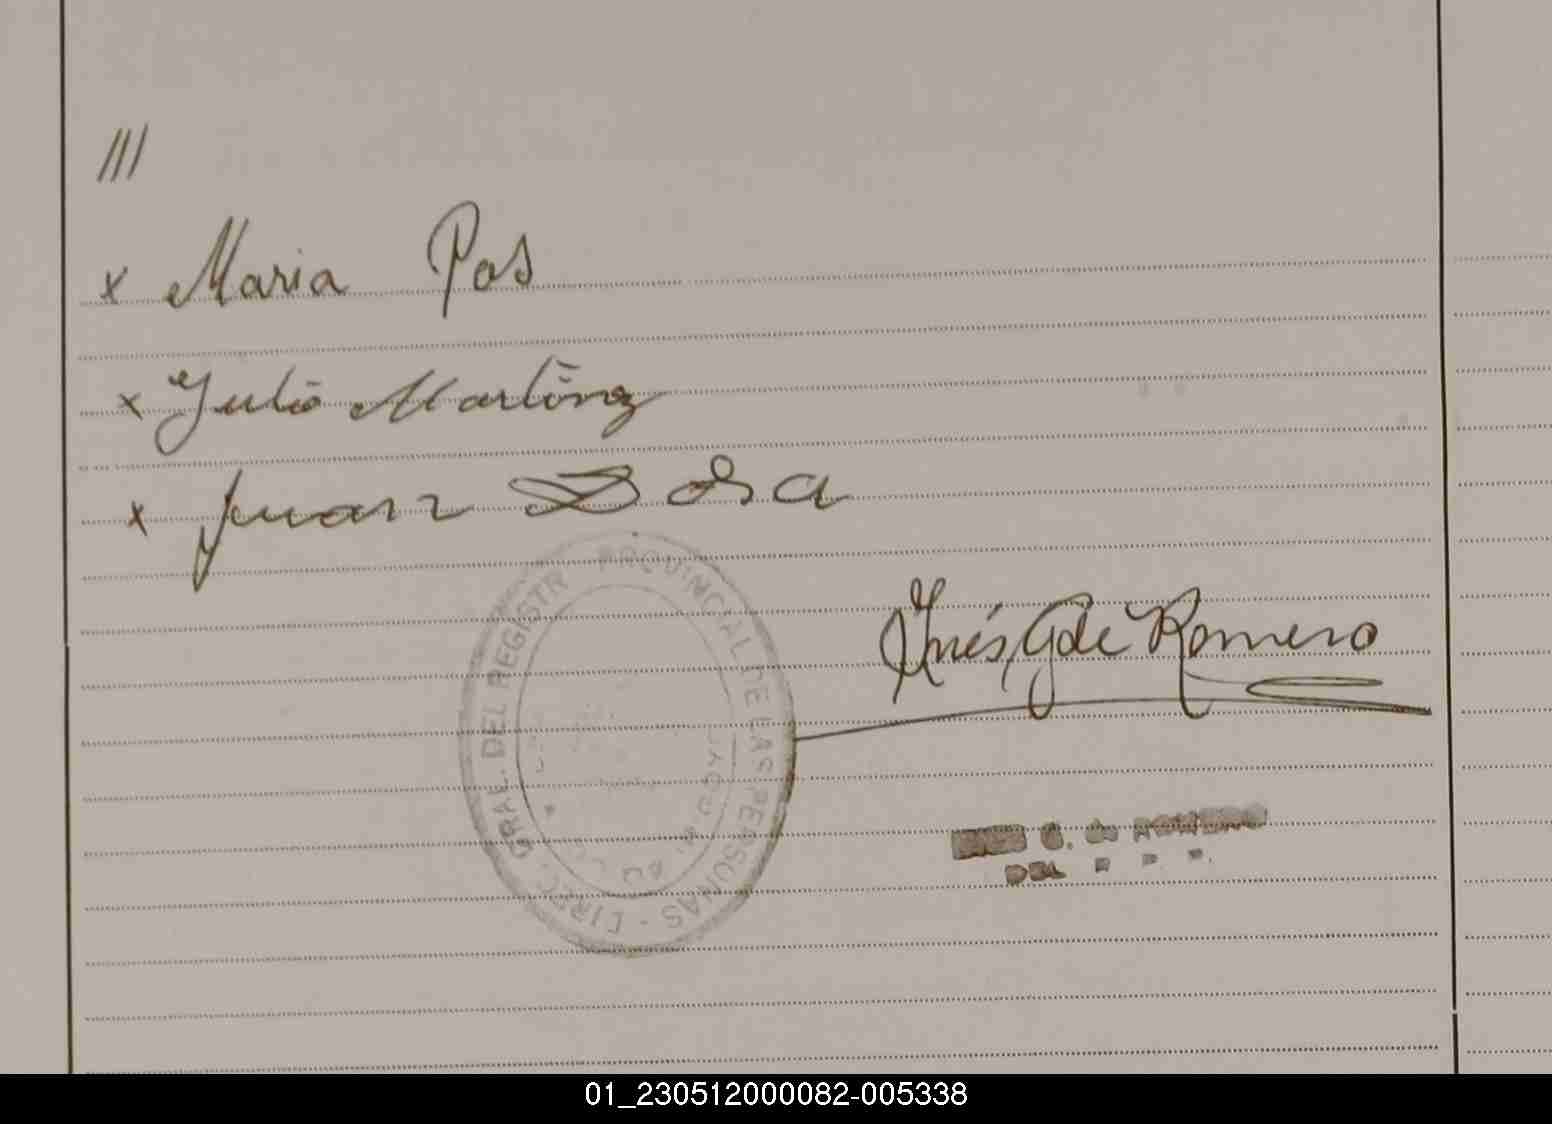 ///
x Maria Pas
x Julio Martinz
x Juan Sosa
Inés G de Romero
DIREC. GRAL. DEL REGISTR PROVINCIAL DE LAS PERSONAS -
G. de ROMERO
DEL
01_230512000082-005338